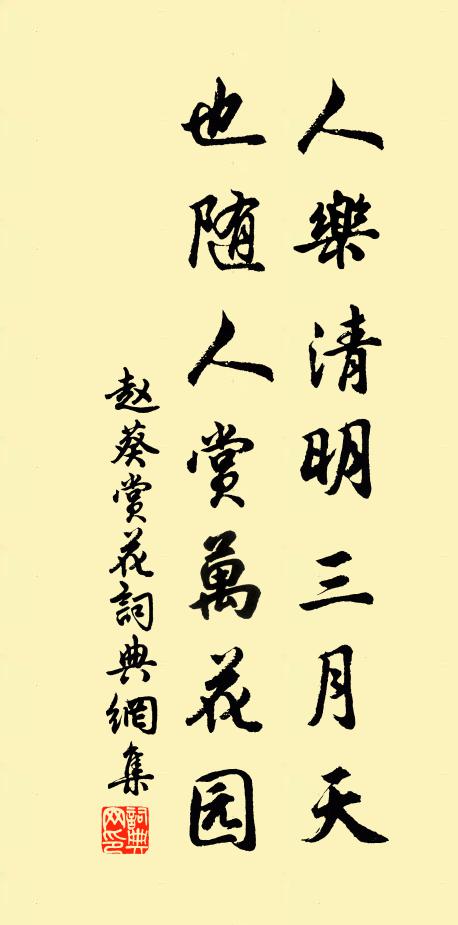 人樂清明三月天
也随人赏萬花园
赵葵赏花詞典網集
詞典网印